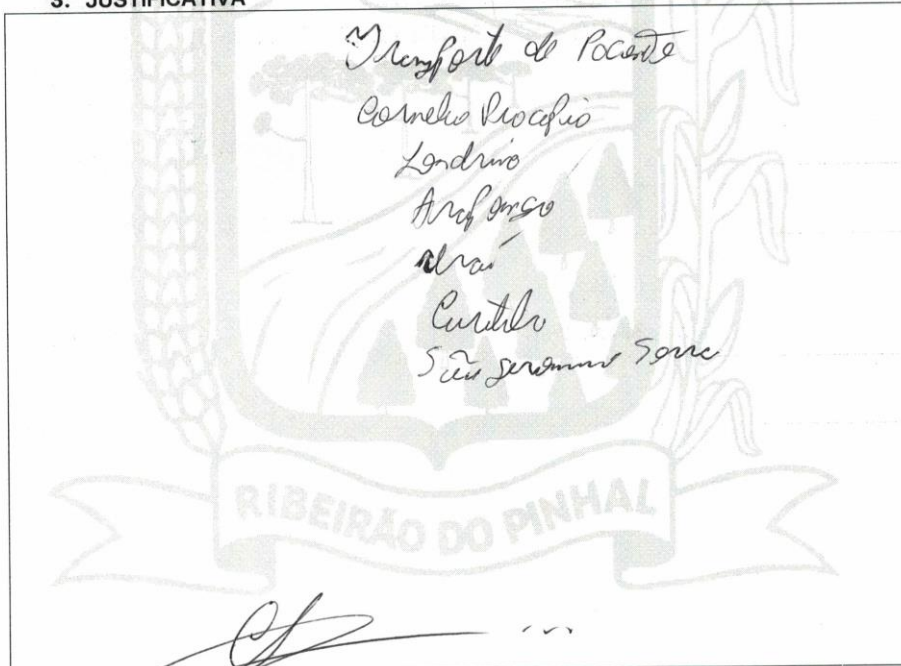 3. JUSTIFICATIVA
Transporte de Paciente
Cornelio Procopio
Londrina
Arapongas
Uraí
Curitiba
São Jeronimo Serra
RIBEIRÃO DO PINHAL